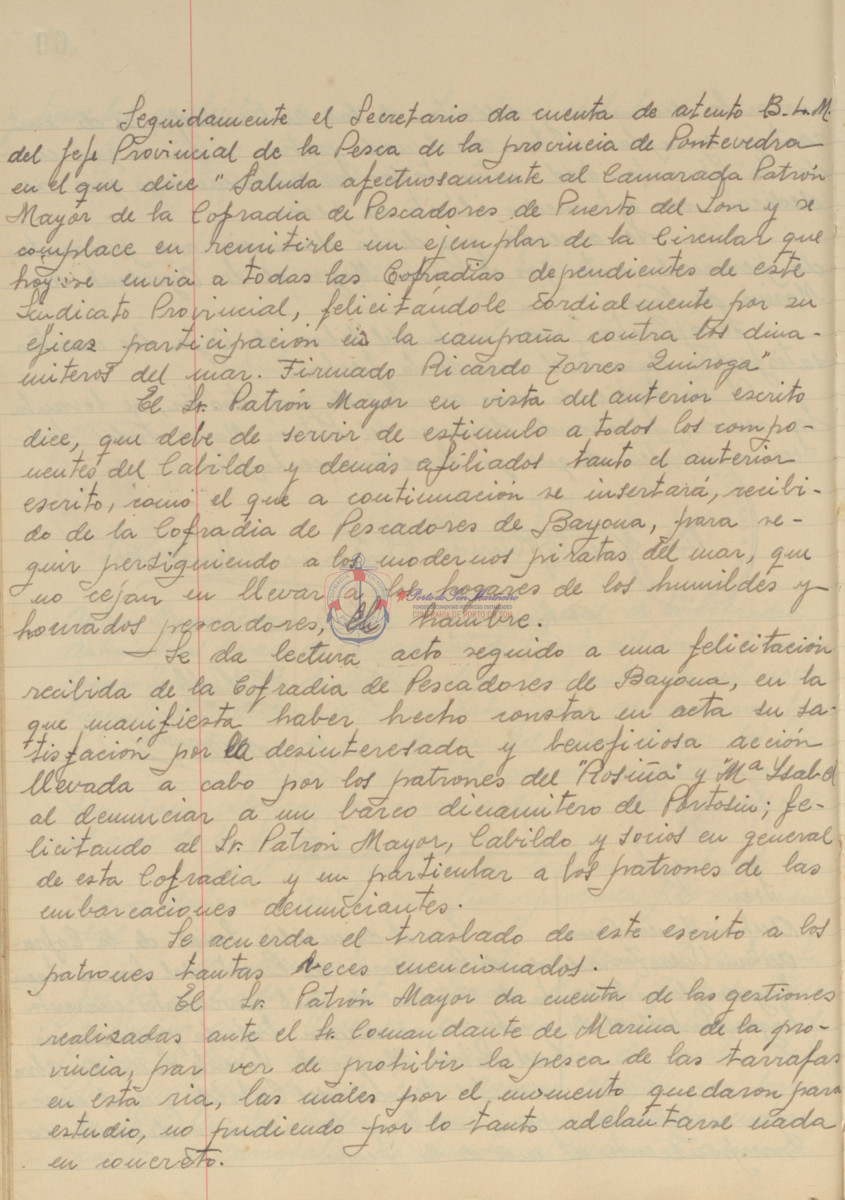 Seguidamente el Secretario da cuenta de atento B.L.M.
del Jefe Provincial de la Pesca de la provincia de Pontevedra
en el que dice "Saluda afectuosamente al Camarada Patrón
Mayor de la Cofradia de Pescadores de Puerto del Son y se
complace en remitirle un ejemplar de la Circular que
hoy se envia a todas las Cofradias dependientes de este
Sindicato Provincial, felicitándole cordialmente por su
eficaz participación en la campaña contra los dina-
miteros del mar. Firmado Ricardo Torres Quiroga"
El Sr. Patrón Mayor en vista del anterior escrito
dice, que debe de servir de estimulo a todos los compo-
nentes del Cabildo y demás afiliados tanto el anterior
escrito, como el que a continuación se insertará, recibi-
do de la Cofradia de Pescadores de Bayona, para se-
guir persiguiendo a los modernos piratas del mar, que
no cejan en llevar a los hogares de los humildes y
honrados pescadores, el hambre.
Se da lectura acto seguido a una felicitación
recibida de la Cofradia de Pescadores de Bayona, en la
que manifiesta haber hecho constar en acta su sa-
tisfación por la desinteresada y beneficiosa acción
llevada a cabo por los patrones del "Rosiña" y "Mª Ysabel
al denunciar a un barco dinamitero de Portosin; fe-
licitando al Sr. Patrón Mayor, Cabildo y socios en general
de esta Cofradia y en particular a los patrones de las
embarcaciones denunciantes.
Se acuerda el traslado de este escrito a los
patrones tantas veces mencionados.
El Sr. Patrón Mayor da cuenta de las gestiones
realizadas ante el Sr. Comandante de Marina de la pro-
vincia, par ver de prohibir la pesca de las tarrafas
en esta ria, las cuales por el momento quedaron para
estudio, no pudiendo por lo tanto adelantarse nada
en concreto.